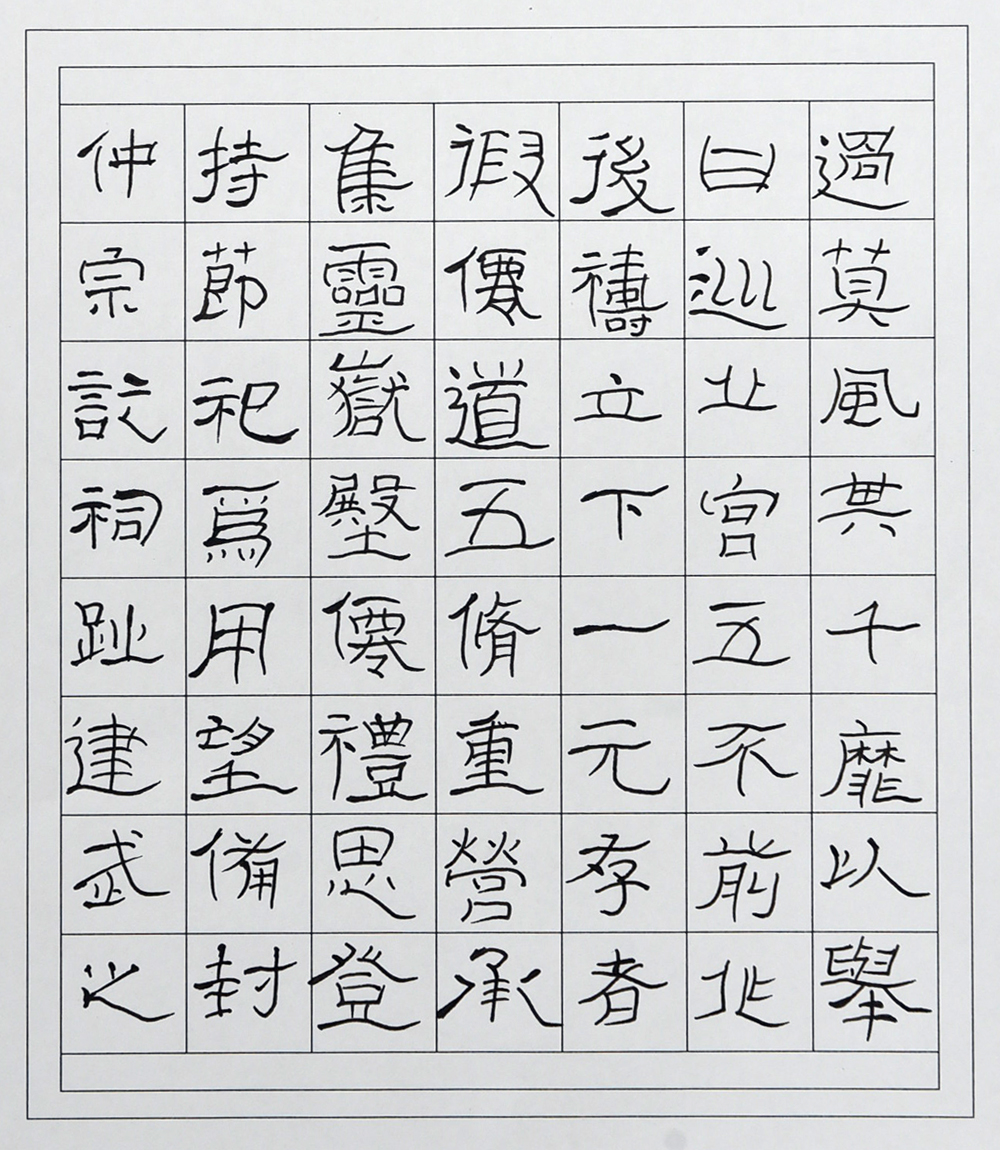 過莫風其千靡以舉
曰巡丘宮五不前北
後禱立下一元存者
徦僊道五脩重營承
集靈嶽壂僊禮思登
持節祀爲用望備封
仲宗訖祠趾建武之